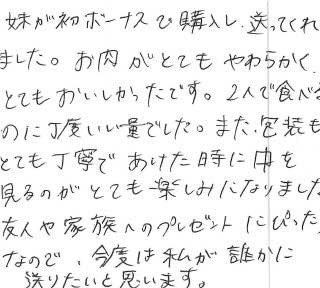 妹が初ボーナスで購入し、送ってくれ
ました。お肉がとてもやわらかく、
とてもおいしかったです。2人で食べる
のに丁度いい量でした。また、包装も
とても丁寧であけた時に中を
見るのがとても楽しみになりました
友人や家族へのプレゼントにぴった
なので、今度は私が誰かに
送りたいと思います。